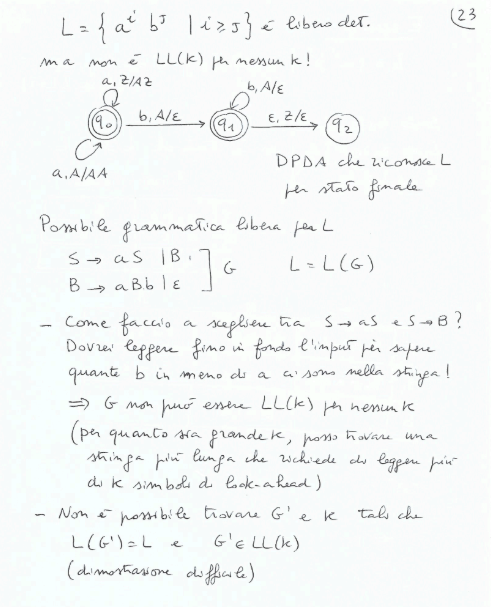 (23
L = { aⁱ bᴶ | i ≥ J } è libero det.
ma non è LL(k) per nessun k!
a, Z/AZ
b, A/ε
q₀ b, A/ε q₁ ε, Z/ε q₂
a, A/AA
DPDA che riconosce L
per stato finale
Possibile grammatica libera per L
S → aS | B
B → aBb | ε ] G L = L(G)
- Come faccio a scegliere tra S → aS e S → B?
Dovrei leggere fino in fondo l'input per sapere
quante b in meno di a ci sono nella stringa!
⇒ G non può essere LL(k) per nessun k
(per quanto sia grande k, posso trovare una
stringa più lunga che richiede di leggere più
di k simboli di look-ahead)
- Non è possibile trovare G' e k tali che
L(G') = L e G' ∈ LL(k)
(dimostrazione difficile)